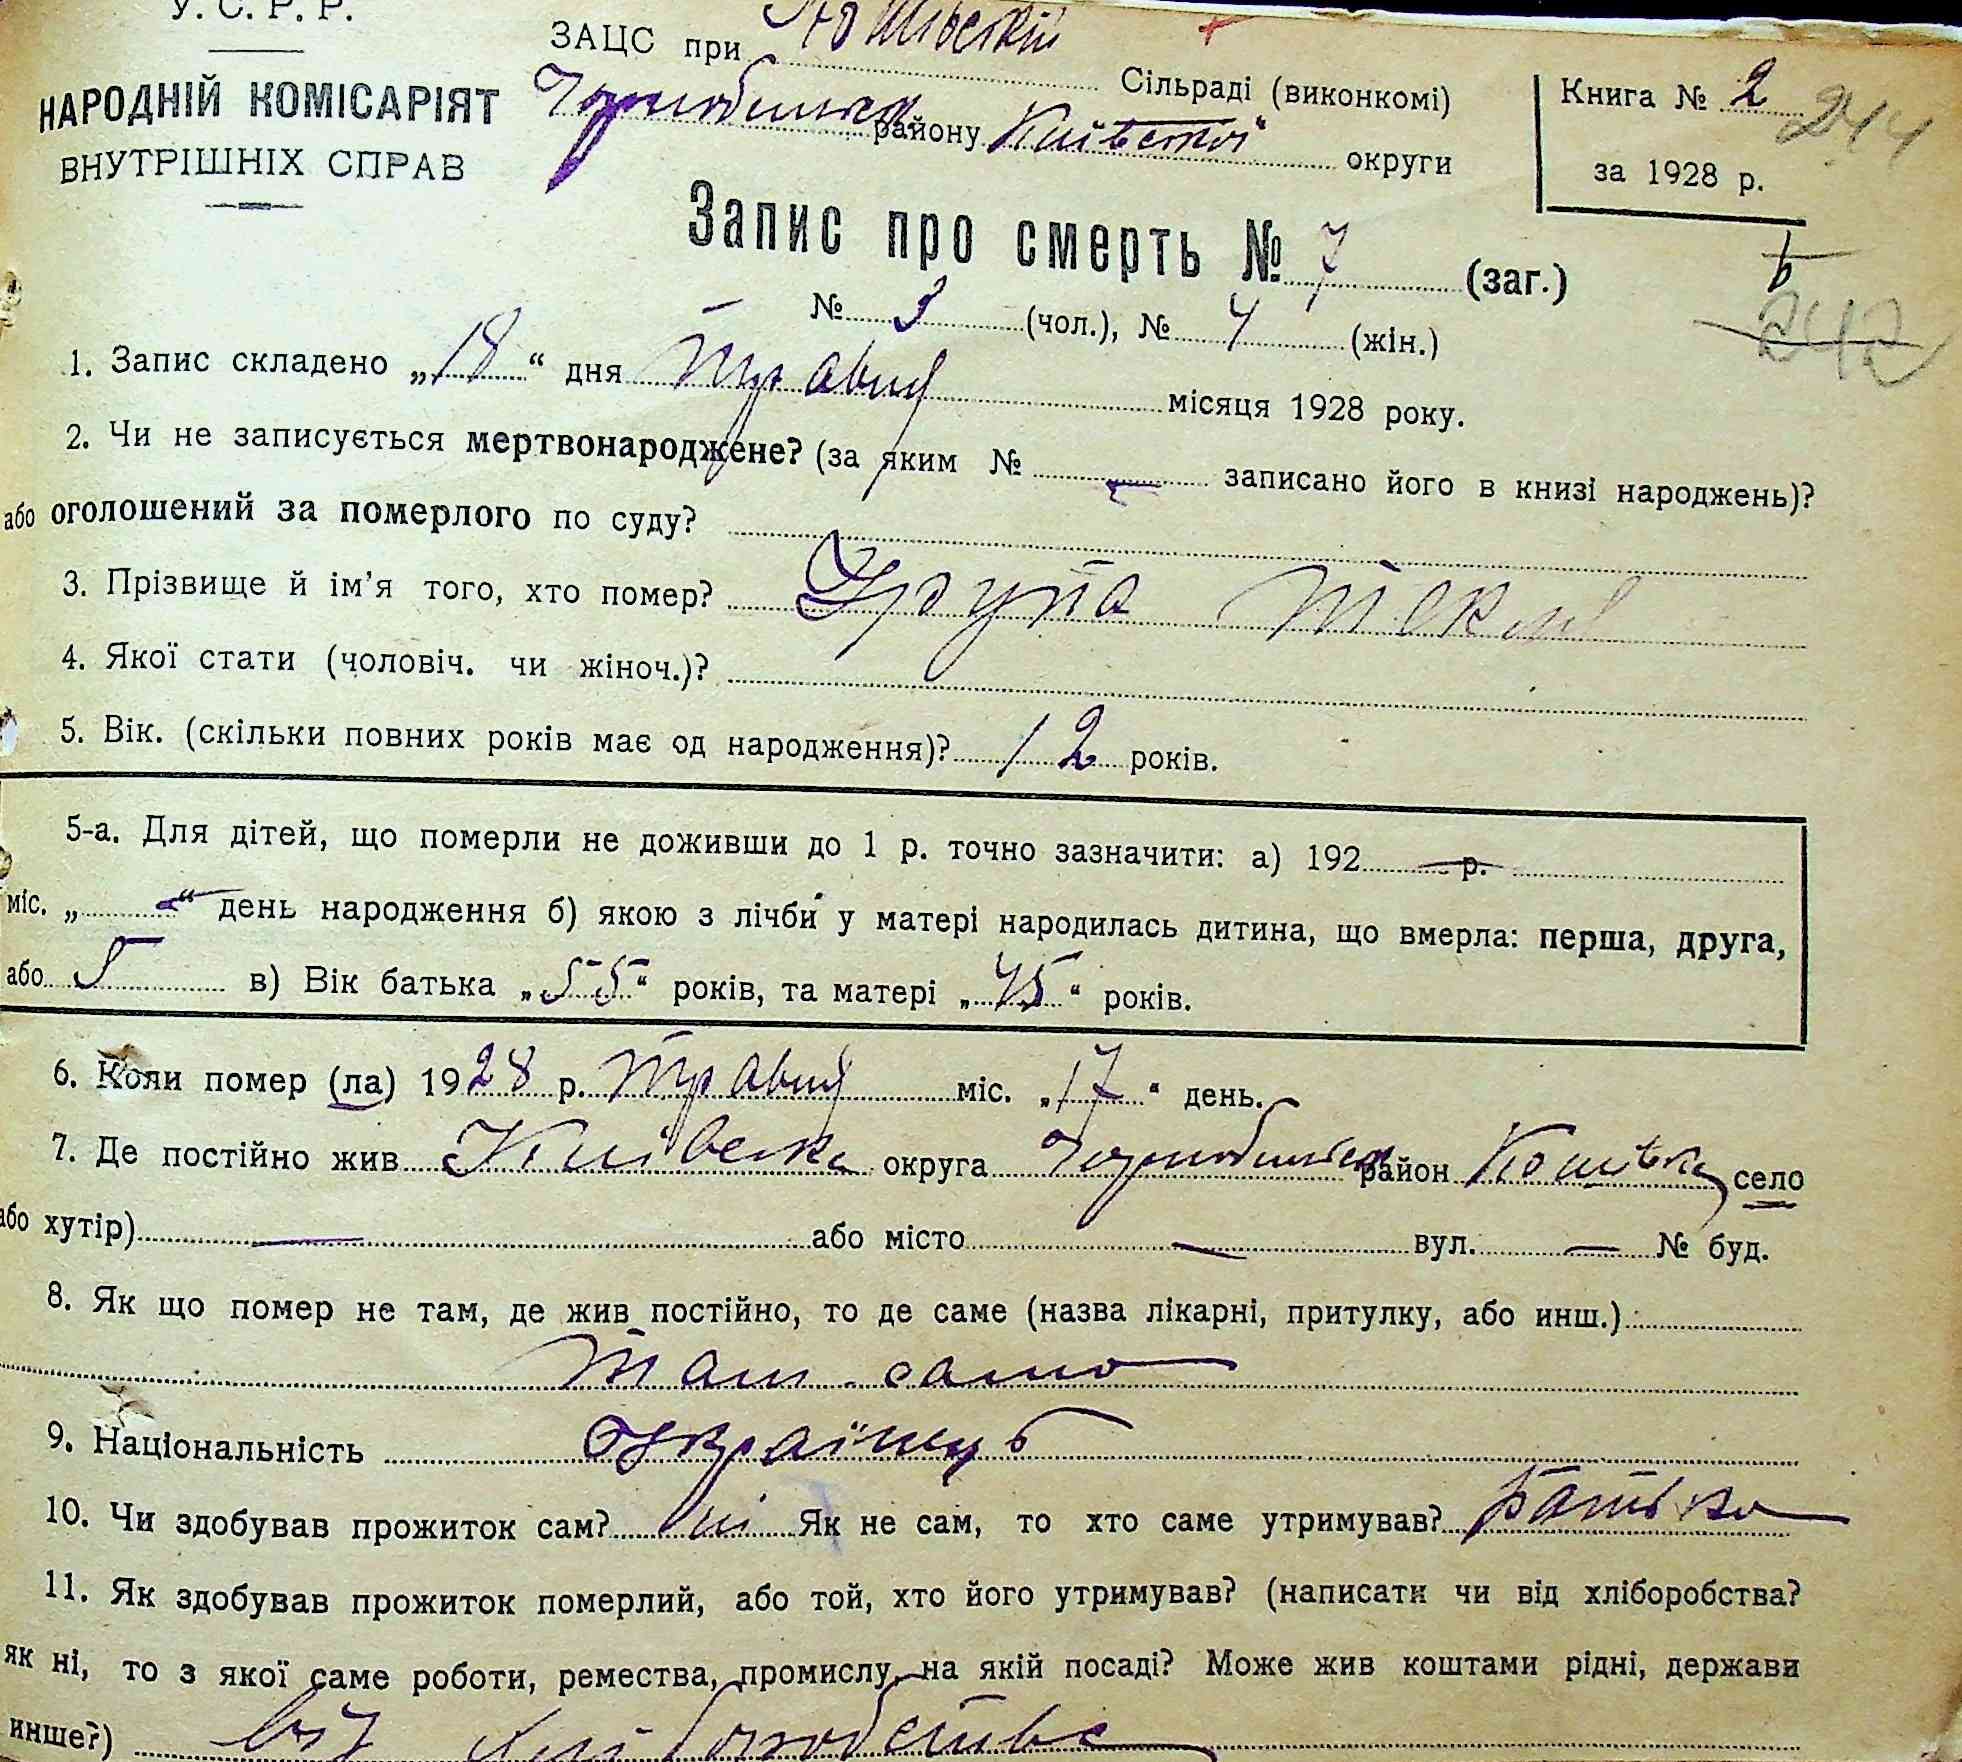 У. С. Р. Р.
НАРОДНІЙ КОМІСАРІЯТ
ВНУТРІШНІХ СПРАВ
ЗАЦС при Сільраді (виконкомі)
району Київської округи
Книга № 2
244
за 1928 р.
Запис про смерть № 7 (заг.)
№ 3 (чол.), № 4 (жін.)
242
1. Запис складено „18“ дня травня місяця 1928 року.
2. Чи не записується мертвонароджене? (за яким № — записано його в книзі народжень)?
або оголошений за померлого по суду?
3. Прізвище й ім’я того, хто помер?
4. Якої стати (чоловіч. чи жіноч.)?
5. Вік. (скільки повних років має од народження)? 12 років.
5-а. Для дітей, що померли не доживши до 1 р. точно зазначити: а) 192 — р.
міс. „ — “ день народження б) якою з лічби у матері народилась дитина, що вмерла: перша, друга,
або 5 в) Вік батька „55“ років, та матері „45“ років.
6. Коли помер (ла) 1928 р. травня міс. „17“ день.
7. Де постійно жив Київська округа район село
або хутір) — або місто — вул. — № буд.
8. Як що помер не там, де жив постійно, то де саме (назва лікарні, притулку, або инш.)
там само
9. Національність Українець
10. Чи здобував прожиток сам? ні Як не сам, то хто саме утримував? батько
11. Як здобував прожиток померлий, або той, хто його утримував? (написати чи від хліборобства?
як ні, то з якої саме роботи, ремества, промислу, на якій посаді? Може жив коштами рідні, держави
инше?) від хліборобства